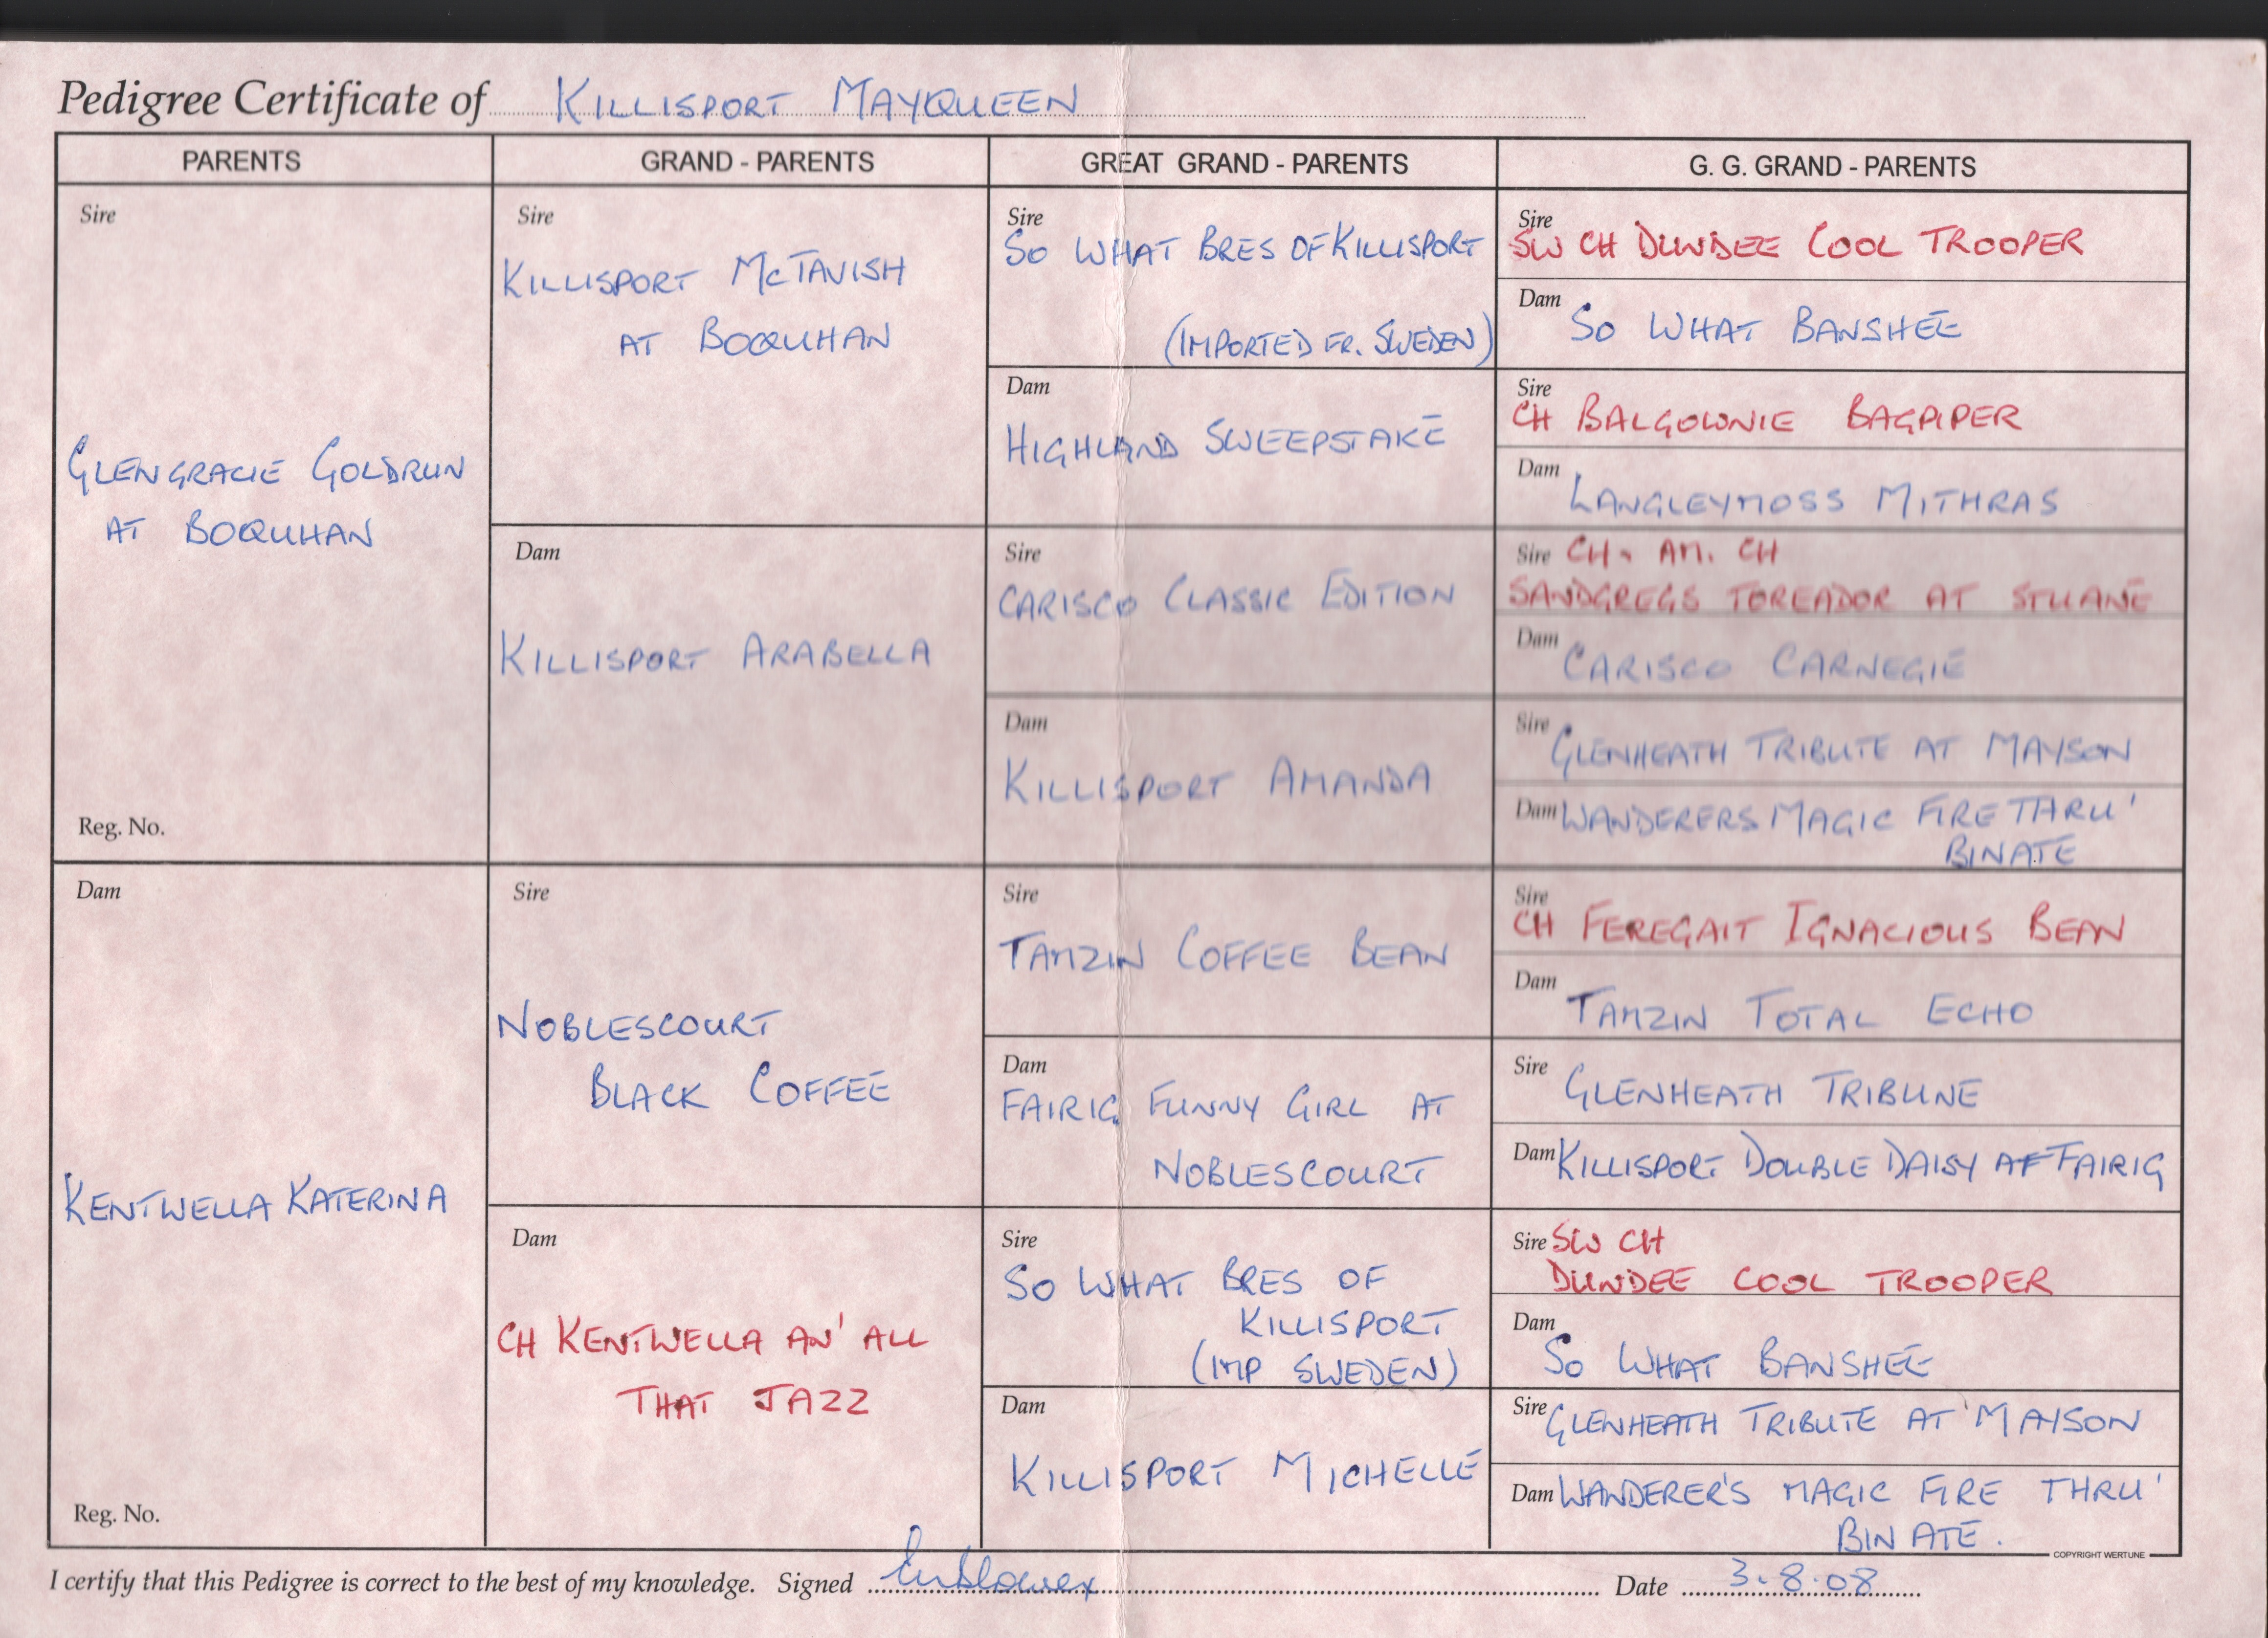 Pedigree Certificate of KILLISPORT MAYQUEEN
PARENTS
GRAND - PARENTS
GREAT GRAND - PARENTS
G. G. GRAND - PARENTS
Sire
GLENGRACIE GOLDRUN
AT BOQUHAN
Reg. No.
Dam
KENTWELLA KATERINA
Reg. No.
Sire
KILLISPORT McTAVISH
AT BOQUHAN
Dam
KILLISPORT ARABELLA
Sire
NOBLESCOURT
BLACK COFFEE
Dam
CH KENTWELLA AN' ALL
THAT JAZZ
Sire
SO WHAT BRES OF KILLISPORT
(IMPORTED FR. SWEDEN)
Dam
HIGHLAND SWEEPSTAKE
Sire
CARISCO CLASSIC EDITION
Dam
KILLISPORT AMANDA
Sire
TAMZIN COFFEE BEAN
Dam
FAIRIG FUNNY GIRL AT
NOBLESCOURT
Sire
SO WHAT BRES OF
KILLISPORT
(IMP SWEDEN)
Dam
KILLISPORT MICHELLE
Sire
SW CH DUNDEE COOL TROOPER
Dam
SO WHAT BANSHEE
Sire
CH BALGOWNIE BAGPIPER
Dam
LANGLEYMOSS MITHRAS
Sire CH. AM. CH
SANDGREGS TOREADOR AT STUANE
Dam
CARISCO CARNEGIE
Sire
GLENHEATH TRIBUTE AT MAYSON
Dam WANDERERS MAGIC FIRE THRU'
BINATE
Sire
CH FEREGAIT IGNACIOUS BEAN
Dam
TAMZIN TOTAL ECHO
Sire
GLENHEATH TRIBUNE
Dam KILLISPORT DOUBLE DAISY AT FAIRIG
Sire SW CH
DUNDEE COOL TROOPER
Dam
SO WHAT BANSHEE
Sire GLENHEATH TRIBUTE AT MAYSON
Dam WANDERER'S MAGIC FIRE THRU'
BINATE.
COPYRIGHT WERTUNE
I certify that this Pedigree is correct to the best of my knowledge. Signed
Date 3.8.08